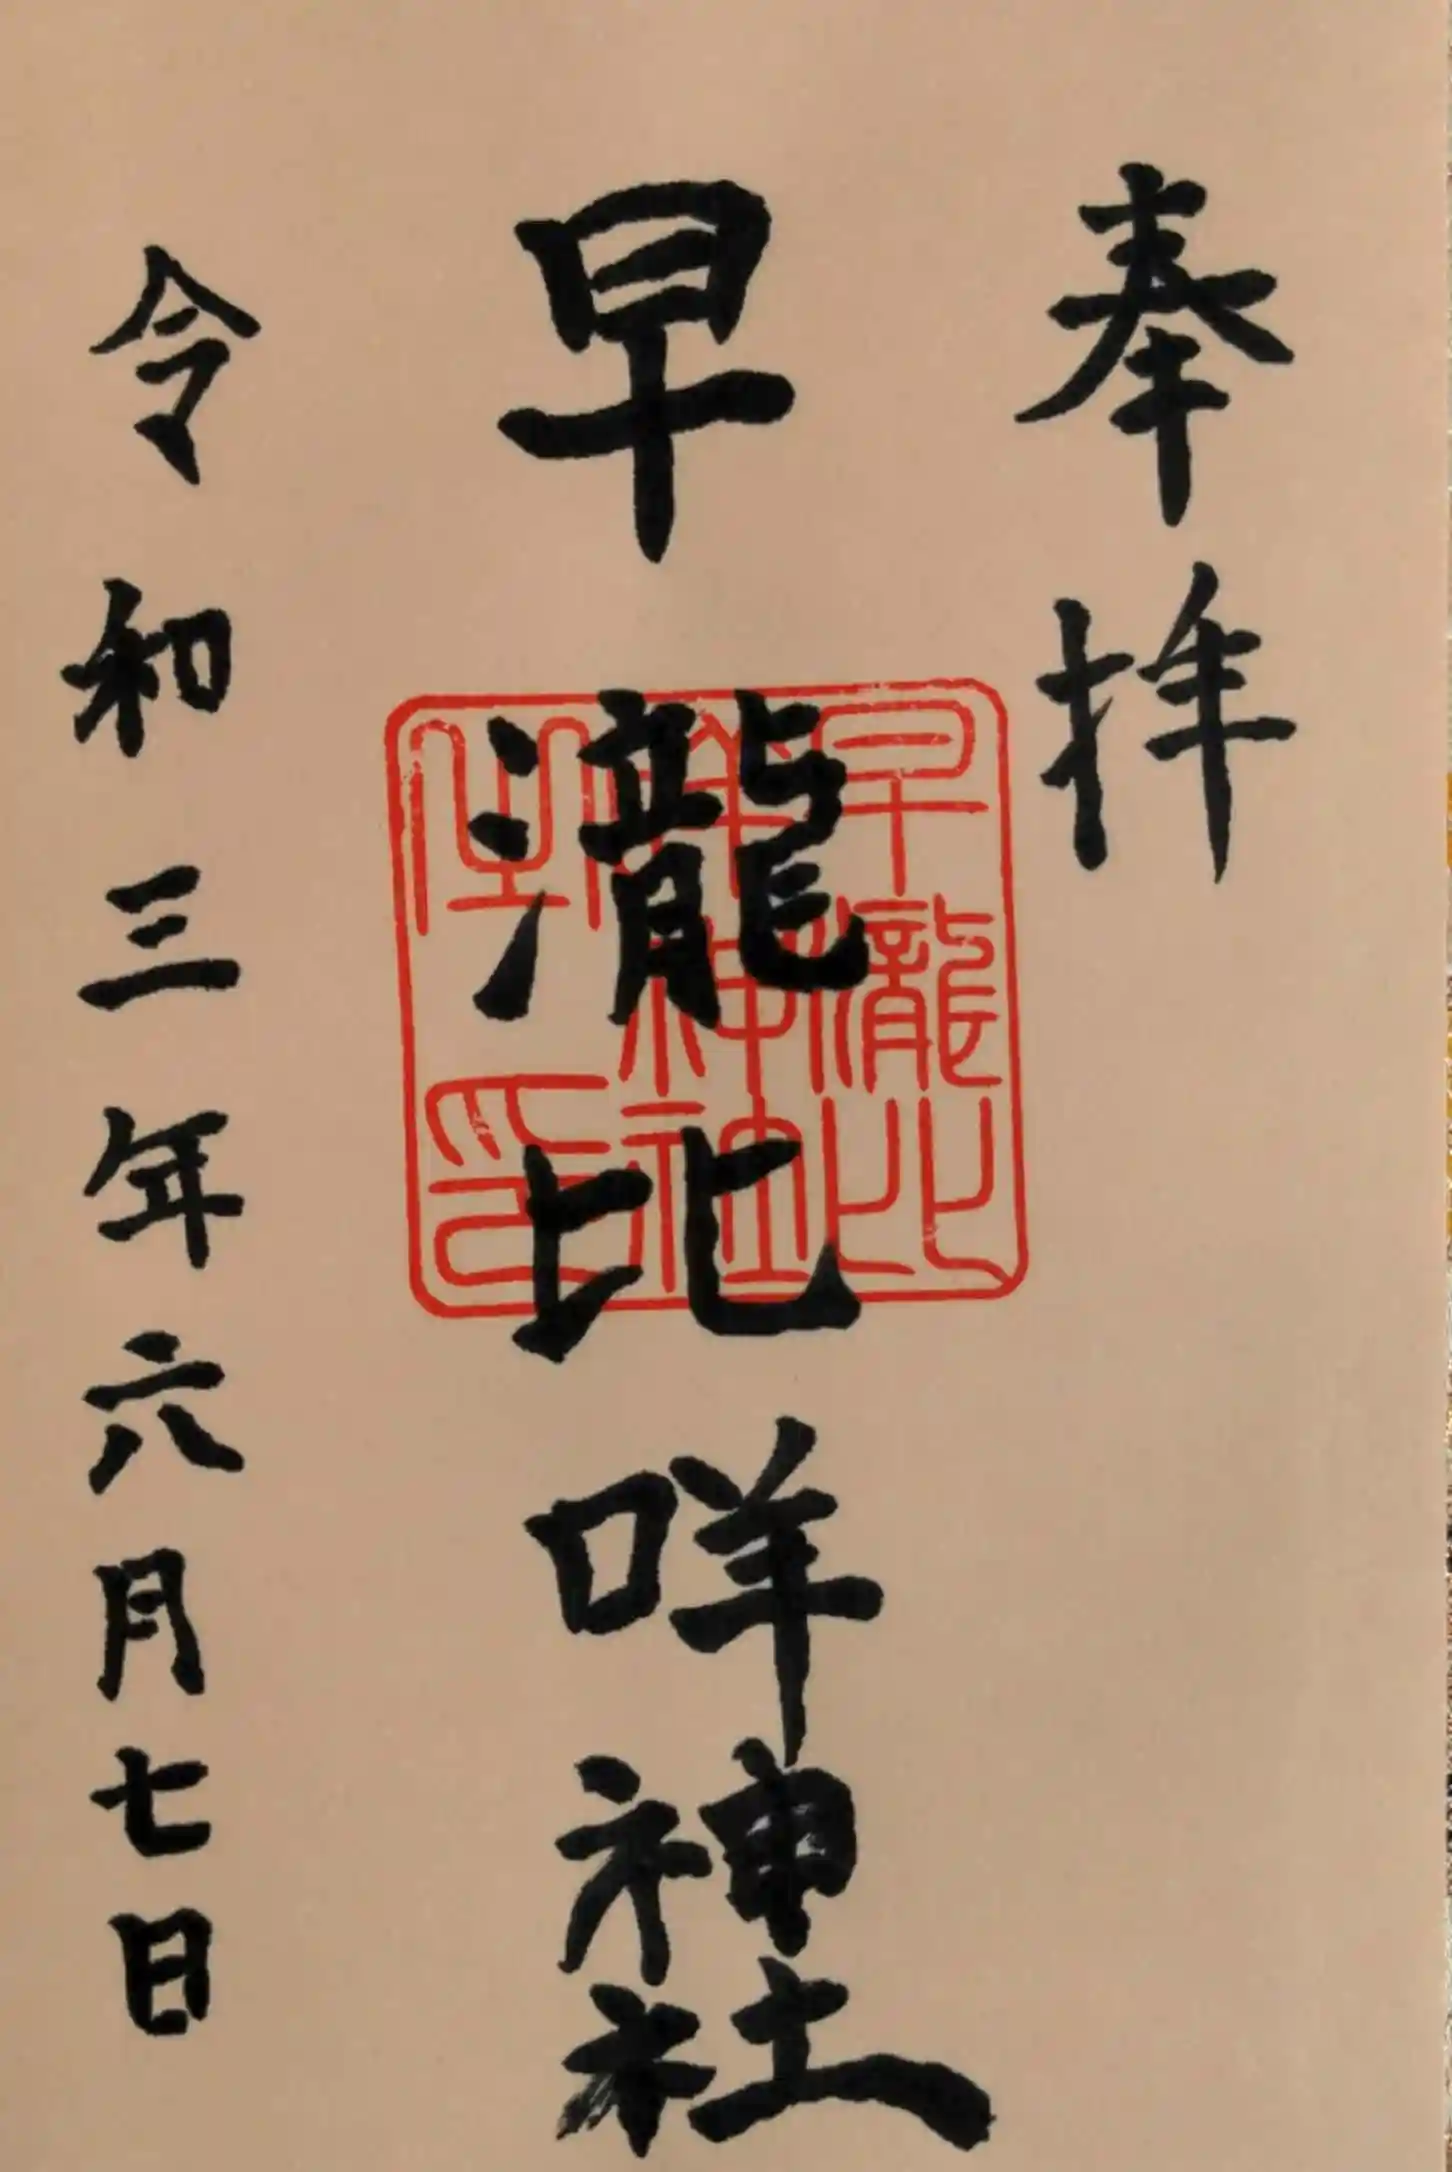 奉拝
早瀧比咩神社
令和三年六月七日
早瀧比
咩神社
之印